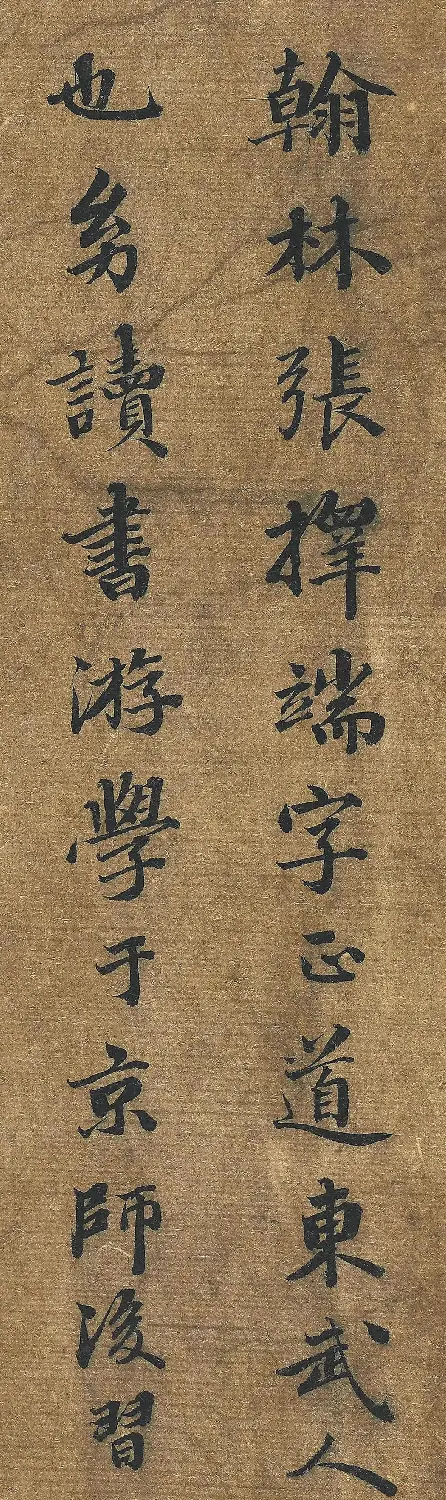 翰林張擇端字正道東武人
也㓜讀書游學于京師後習